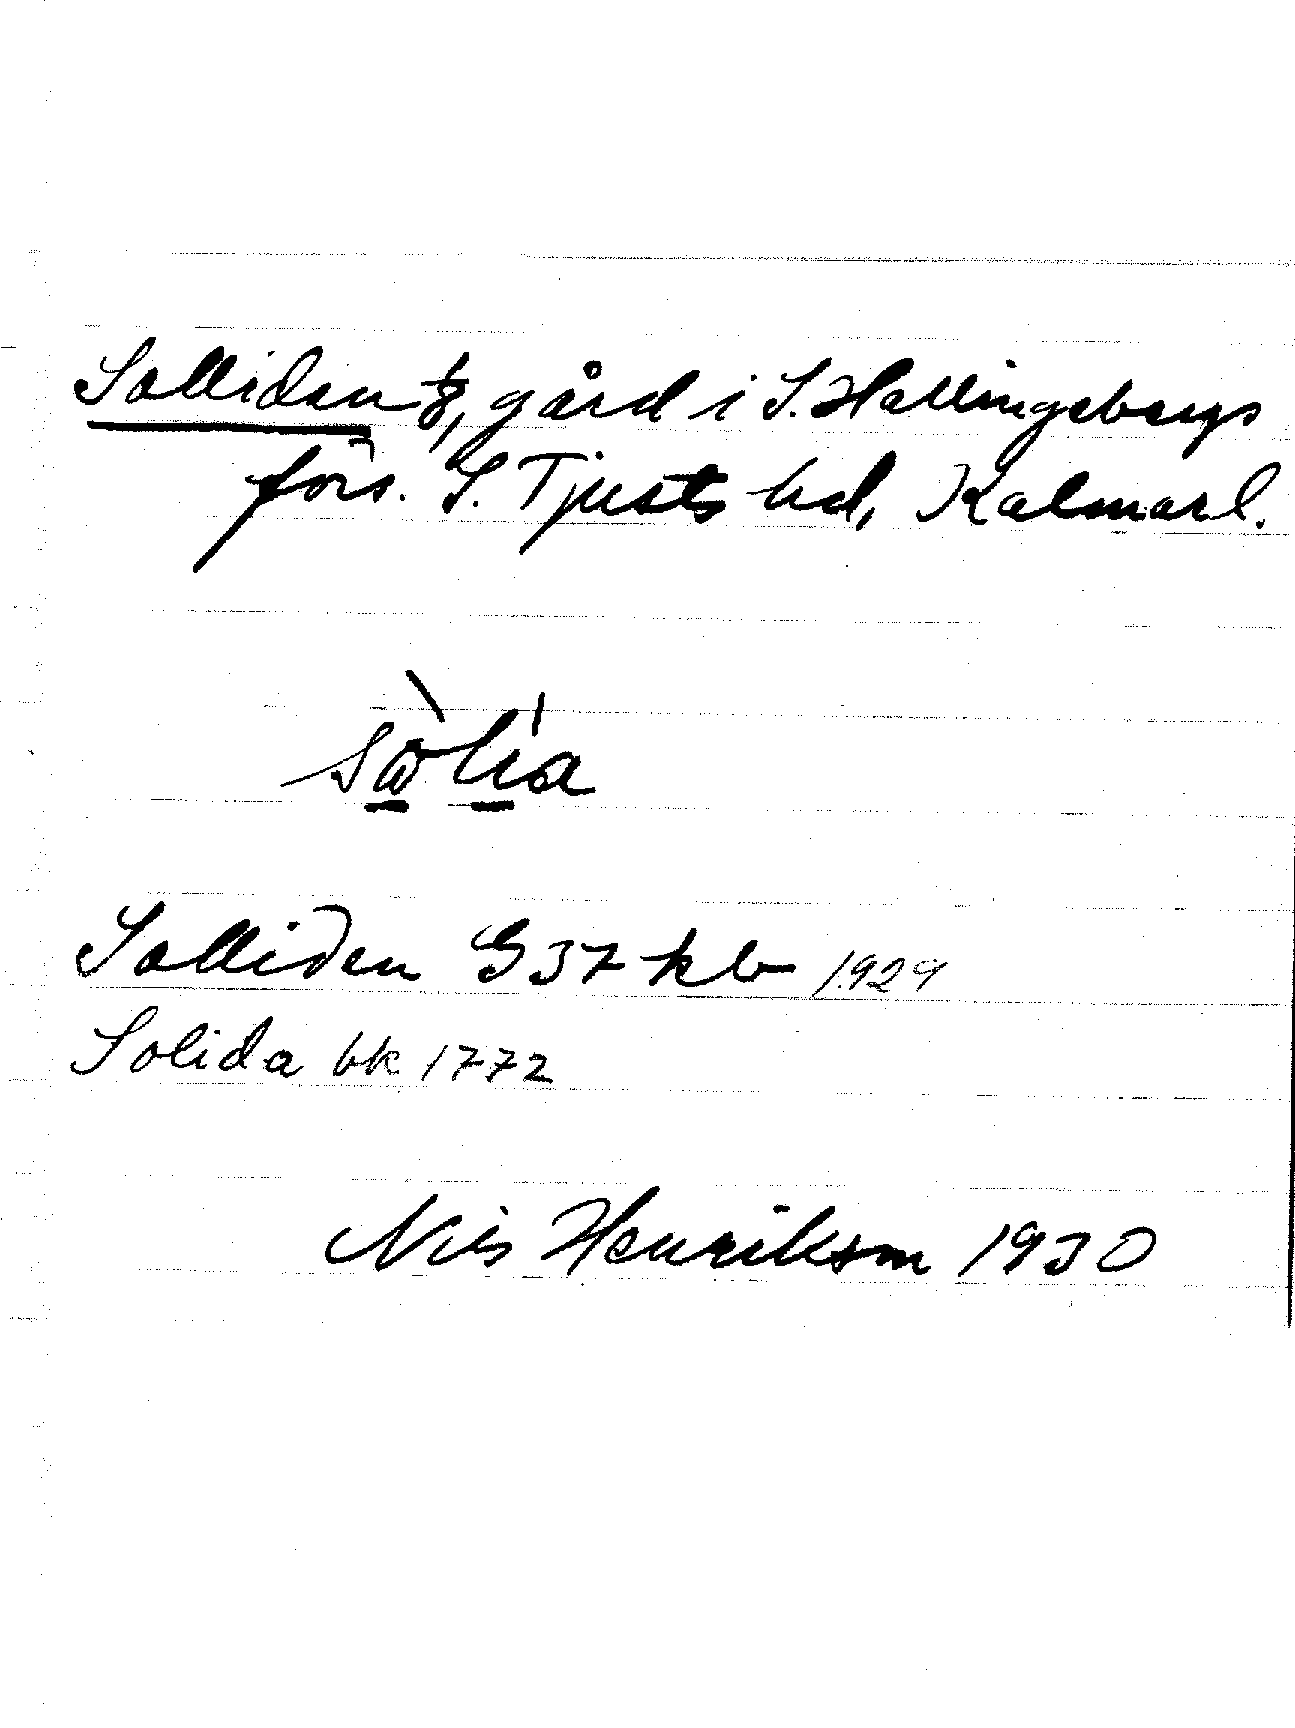 Solliden 1/8, gård i S. Hallingebergs
förs. S. Tjusts hd, Kalmarl.
Solliden G37 kb 1929
Solida bk 1772
Nils Henrikson 1930